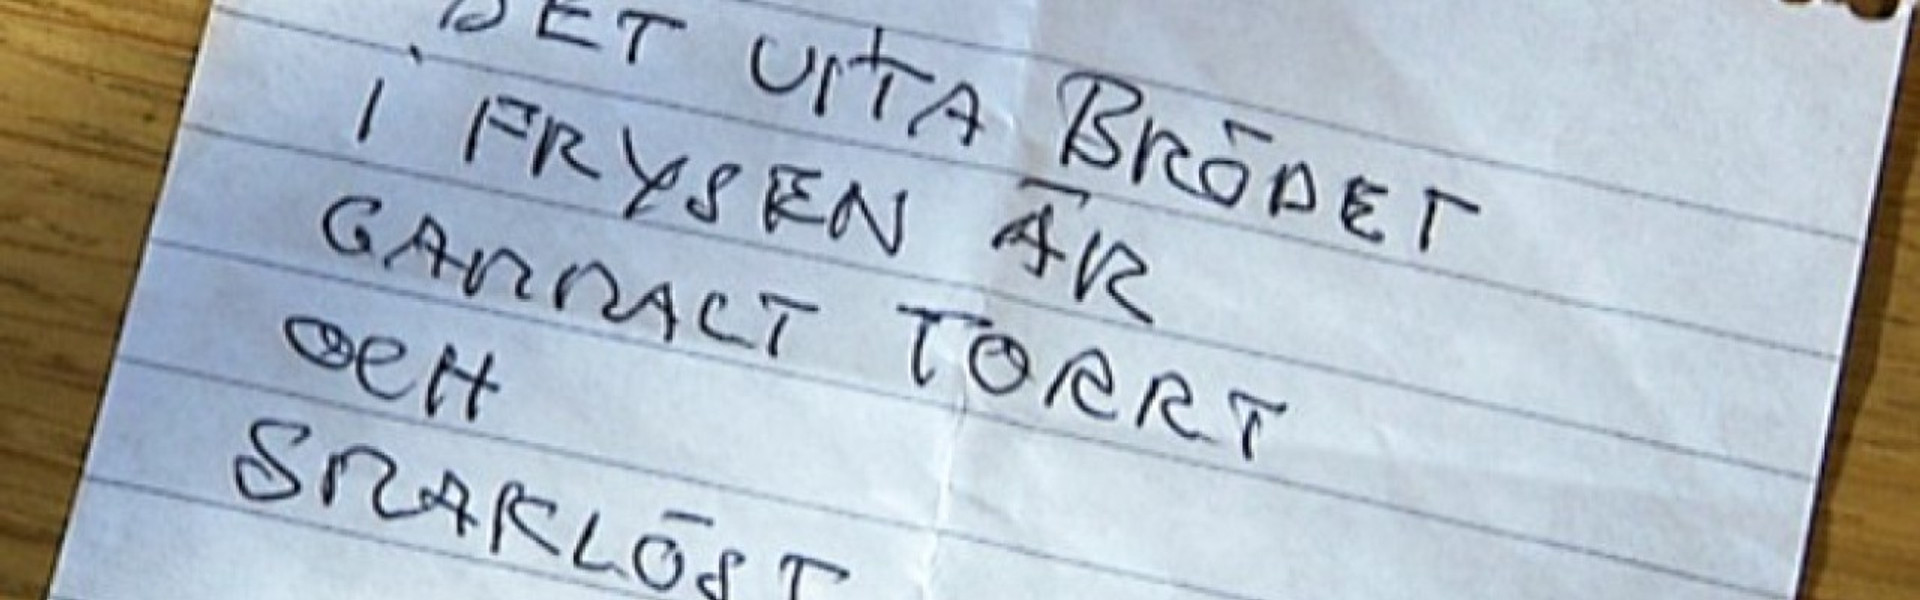 DET VITA BRÖDET
I FRYSEN ÄR
GAMMALT TORRT
OCH
SMAKLÖST